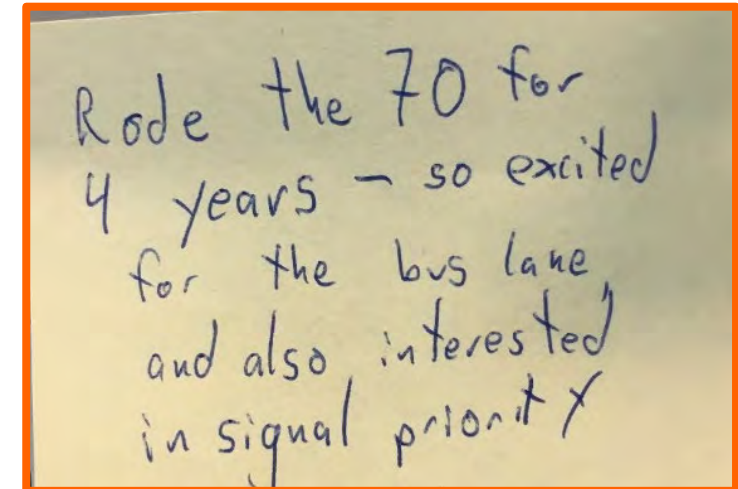 Rode the 70 for
4 years - so excited
for the bus lane,
and also interested
in signal priority